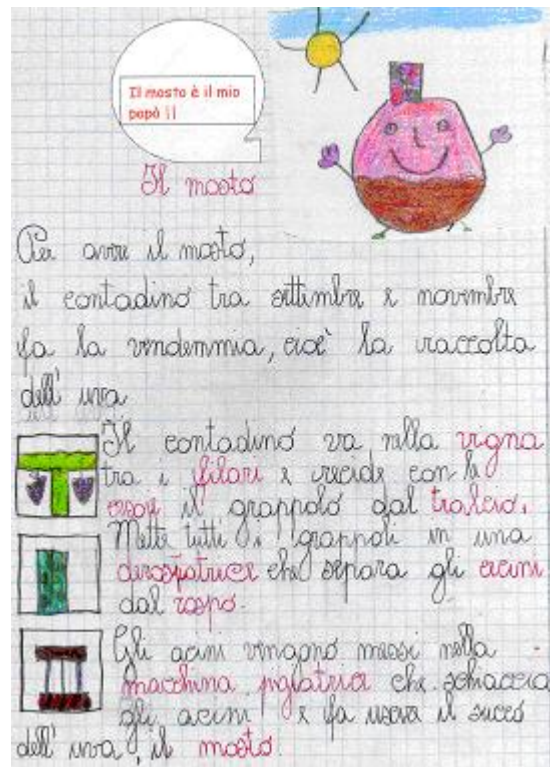 Il mosto è il mio
papà !!
Il mosto
Per avere il mosto,
il contadino tra settembre e novembre
fa la vendemmia, cioè la raccolta
dell' uva
Il contadino va nella vigna
tra i filari e recide con le
cesoie il grappolo dal tralcio.
Mette tutti i grappoli in una
diraspatrice che separa gli acini
dal raspo.
Gli acini vengono messi nella
macchina pigiatrice che schiaccia
gli acini e fa uscire il succo
dell' uva, il mosto.